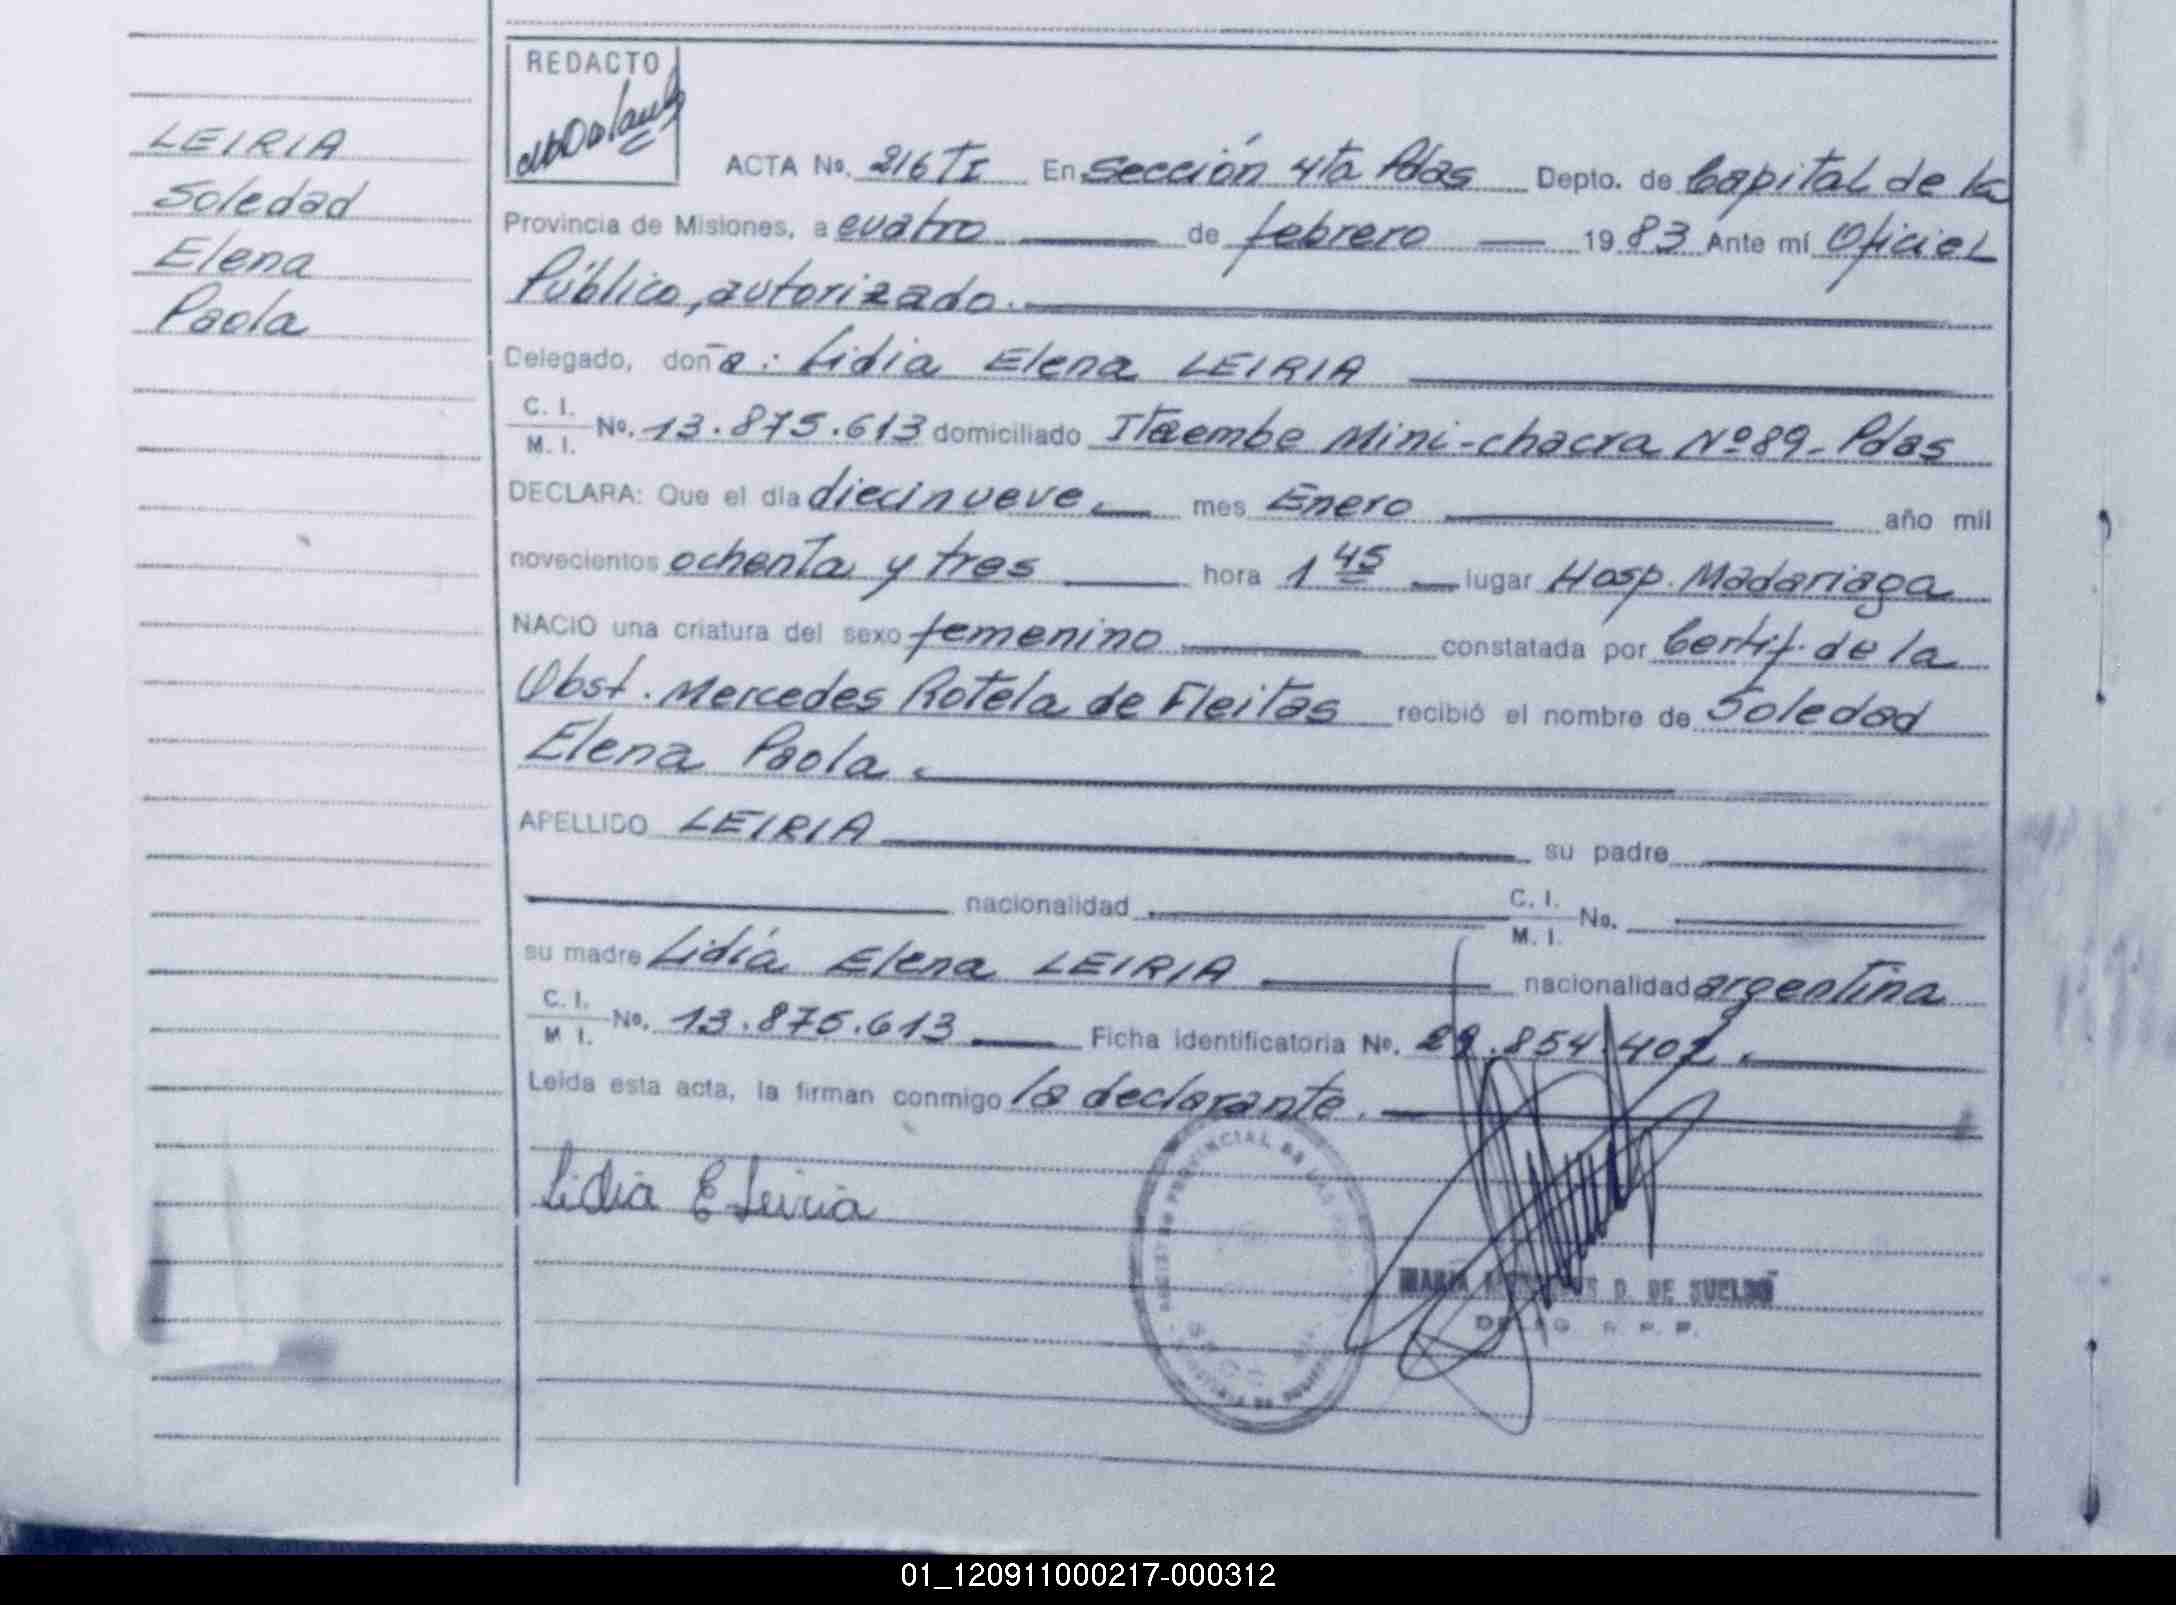 REDACTO
LEIRIA
Soledad
Elena
Paola
ACTA No. 216 TI En Sección 4ta Pdas Depto. de Capital de la
Provincia de Misiones, a cuatro de febrero 19 83 Ante mí Oficial
Público, autorizado.
Delegado, doña: Lidia Elena LEIRIA
C. I.
M. I. No. 13.875.613 domiciliado Itaembe Mini-chacra Nº 89- Pdas
DECLARA: Que el día diecinueve mes Enero año mil
novecientos ochenta y tres hora 1 45 lugar Hosp. Madariaga
NACIO una criatura del sexo femenino constatada por Certif. de la
Obst. Mercedes Rotela de Fleitas recibió el nombre de Soledad
Elena Paola.
APELLIDO LEIRIA su padre
nacionalidad C. I. M. I. No.
su madre Lidia Elena LEIRIA nacionalidad argentina
C. I.
M I. No. 13.875.613 Ficha identificatoria No. 29.854.402.
Leída esta acta, la firman conmigo la declarante.
Lidia E Leiria
MARIA D. DE SUELDO
R. P. P.
01_120911000217-000312